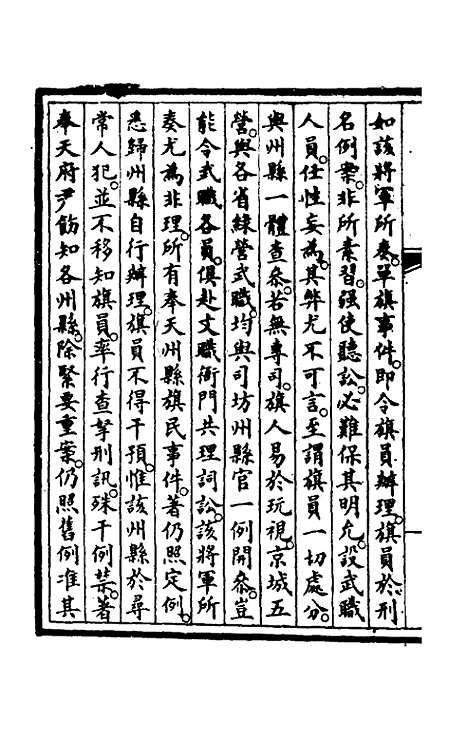 如該將軍所奏。單旗事件。即令旗員辦理。旗員於刑
名例案。非所素習。强使聽訟。必難保其明允。設武職
人員。任性妄為。其弊尤不可言。至謂旗員一切處分。
與州縣一體查叅。若無專司。旗人易於玩視。京城五
營。與各省緑營武職。均與司坊州縣官一例開叅。豈
能令武職各員。俱赴文職衙門共理詞訟。該將軍所
奏尤為非理。所有奉天州縣旗民事件。著仍照定例。
悉歸州縣自行辦理。旗員不得干預。惟該州縣於尋
常人犯。並不移知旗員。率行查拏刑訊。殊干例禁。著
奉天府尹飭知各州縣。除緊要重案。仍照舊例准其